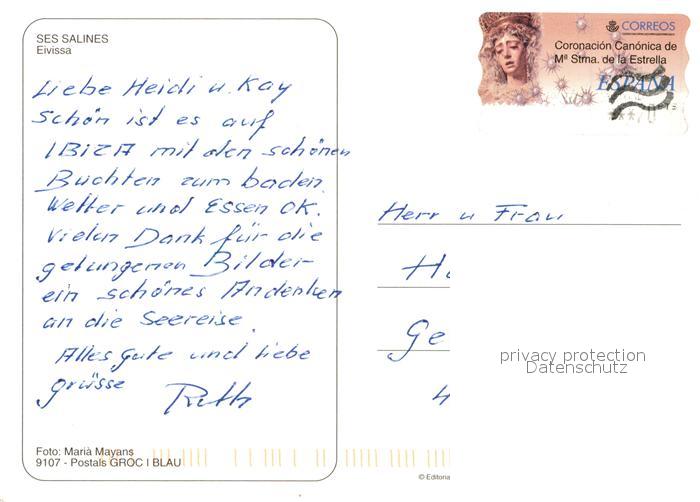 SES SALINES
Eivissa
Liebe Heidi u. Kay
Schön ist es auf
IBIZA mit den schönen
Buchten zum baden.
Wetter und Essen OK.
Vielen Dank für die
gelungenen Bilder -
ein schönes Andenken
an die Seereise.
Alles Gute und liebe
grüsse Ruth
Foto: Marià Mayans
9107 - Postals GROC I BLAU
CORREOS
Coronación Canónica de
Mª Stma. de la Estrella
ESPAÑA
Herr u Frau
Ge
privacy protection
Datenschutz
© Editoria